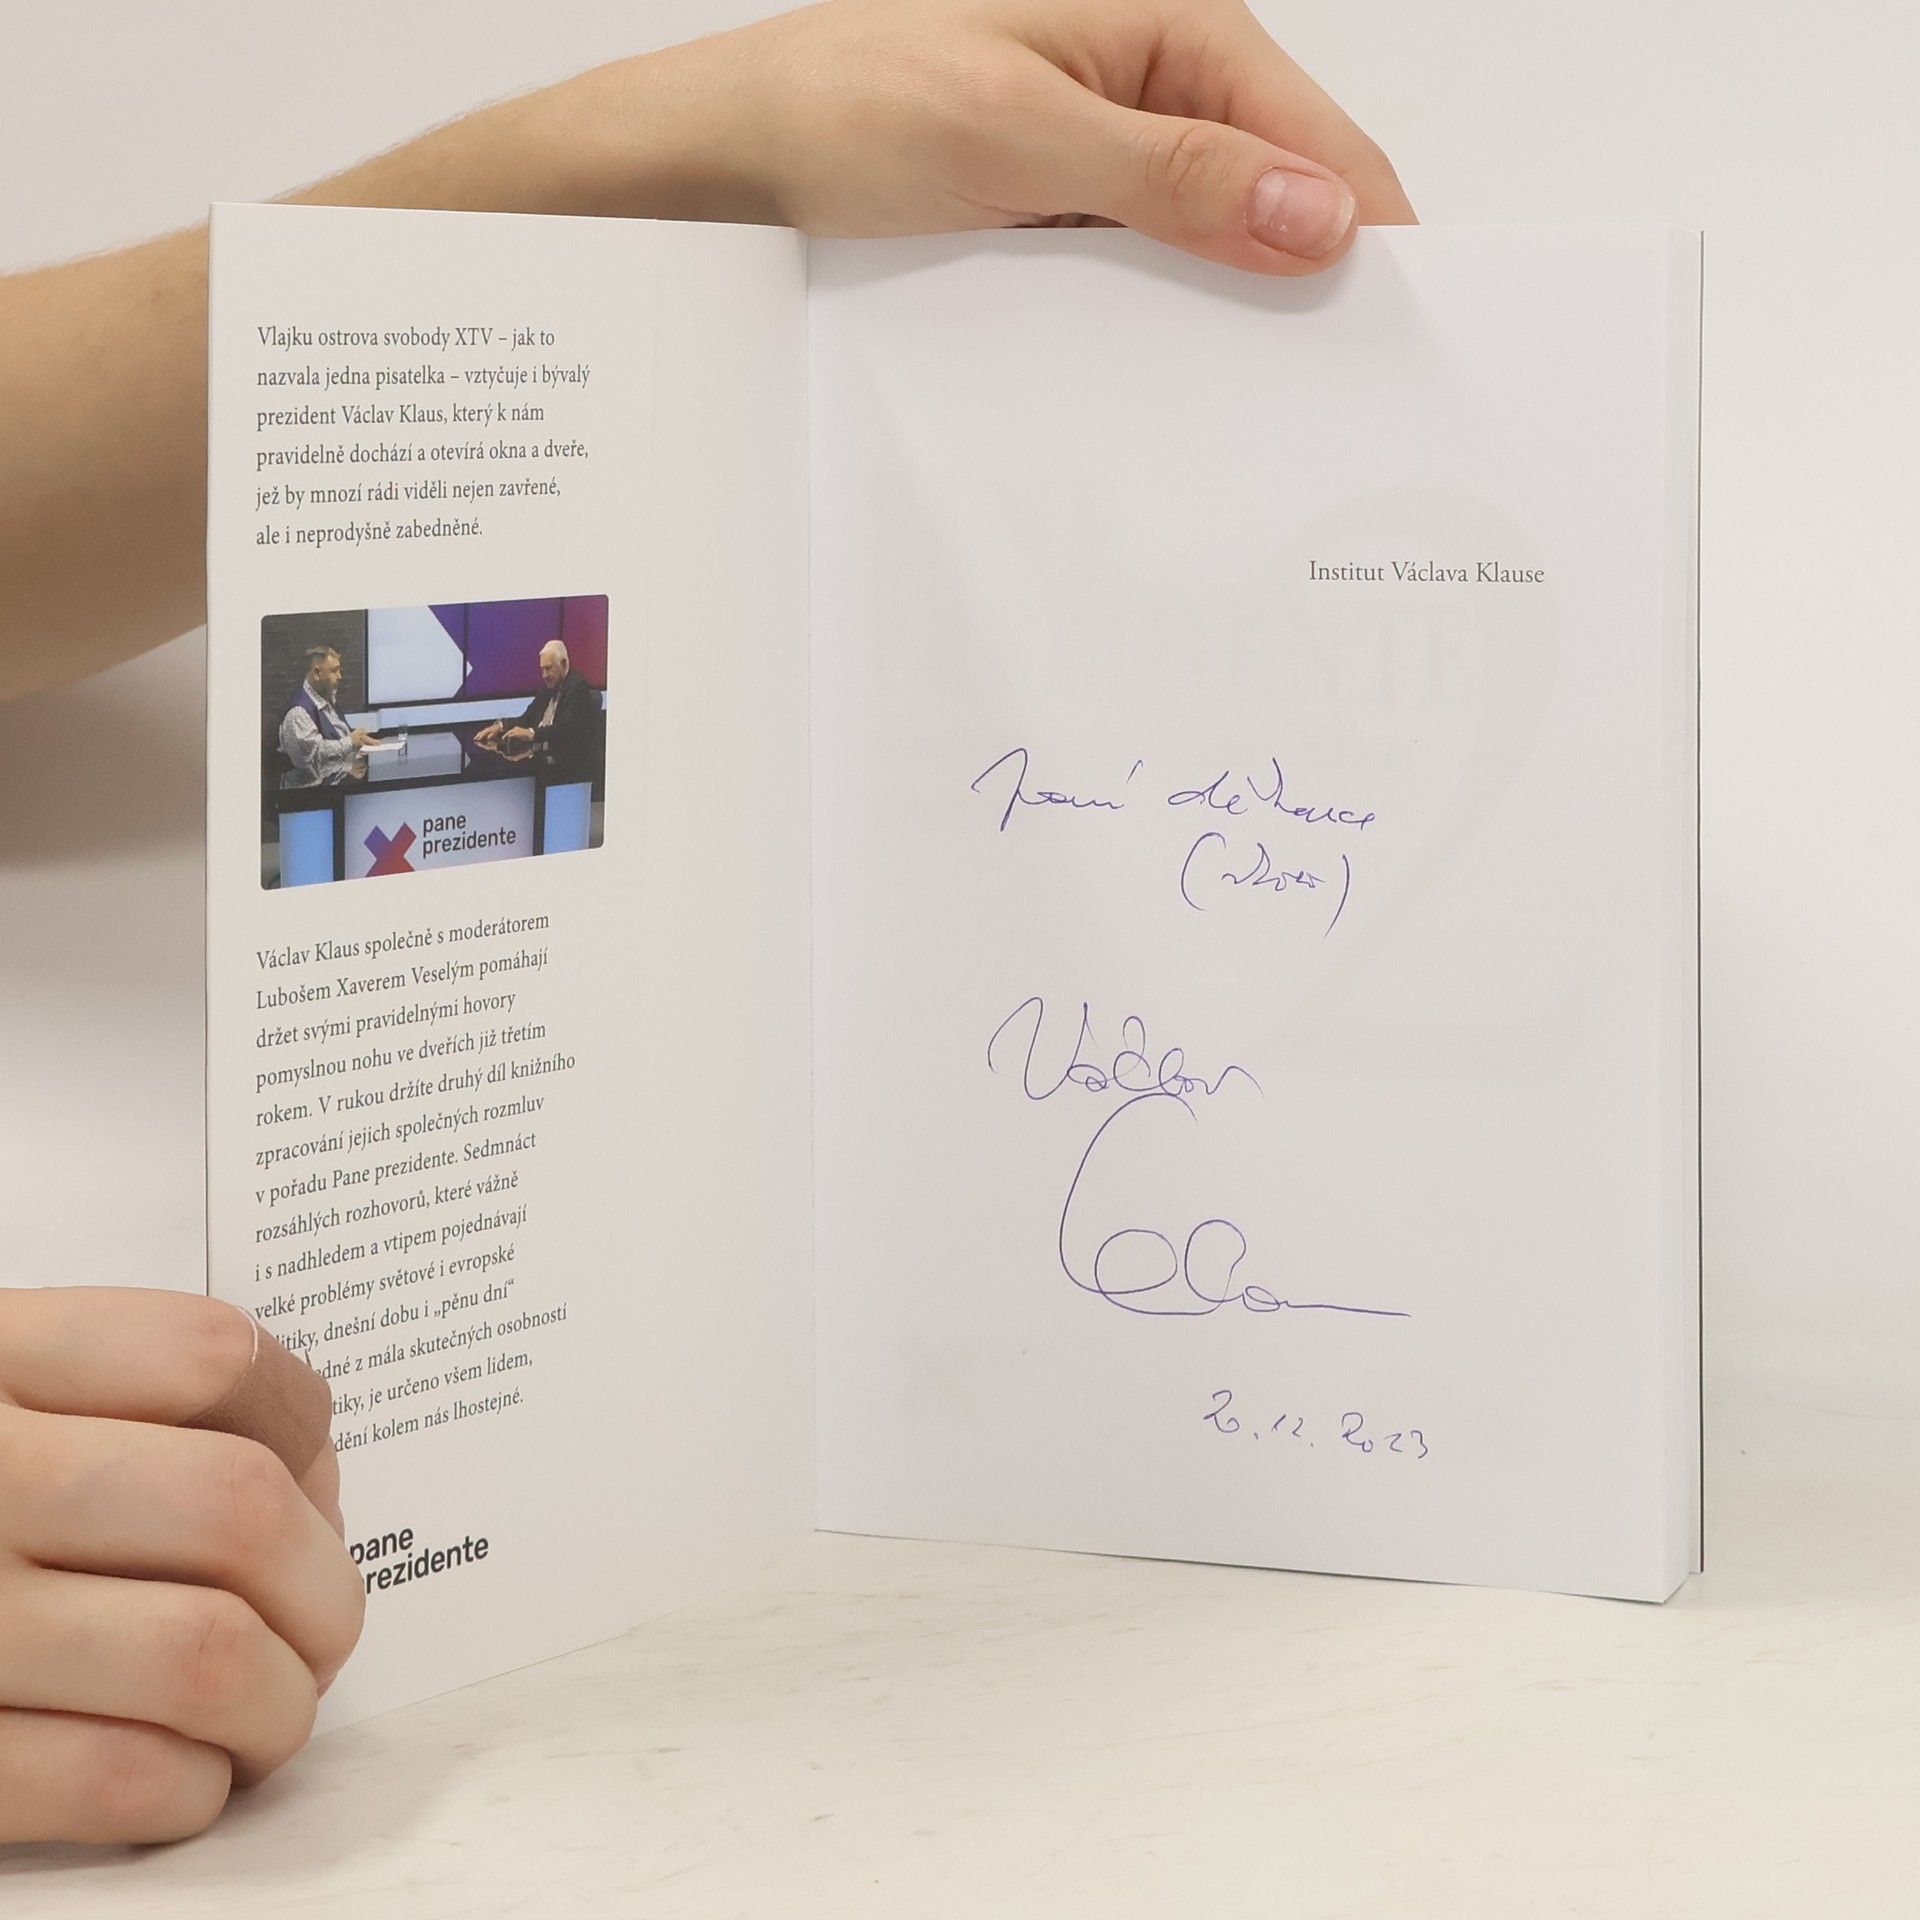 Vlajku ostrova svobody XTV – jak to
nazvala jedna pisatelka – vztyčuje i bývalý
prezident Václav Klaus, který k nám
pravidelně dochází a otevírá okna a dveře,
jež by mnozí rádi viděli nejen zavřené,
ale i neprodyšně zabedněné.
pane
prezidente
Václav Klaus společně s moderátorem
Lubošem Xaverem Veselým pomáhají
držet svými pravidelnými hovory
pomyslnou nohu ve dveřích již třetím
rokem. V rukou držíte druhý díl knižního
zpracování jejich společných rozmluv
v pořadu Pane prezidente. Sedmnáct
rozsáhlých rozhovorů, které vážně
i s nadhledem a vtipem pojednávají
velké problémy světové i evropské
itiky, dnešní dobu i „pěnu dní“
dné z mála skutečných osobností
tiky, je určeno všem lidem,
dění kolem nás lhostejné.
pane
rezidente
Institut Václava Klause
paní děkance
Václav
Klaus
2.12.2023